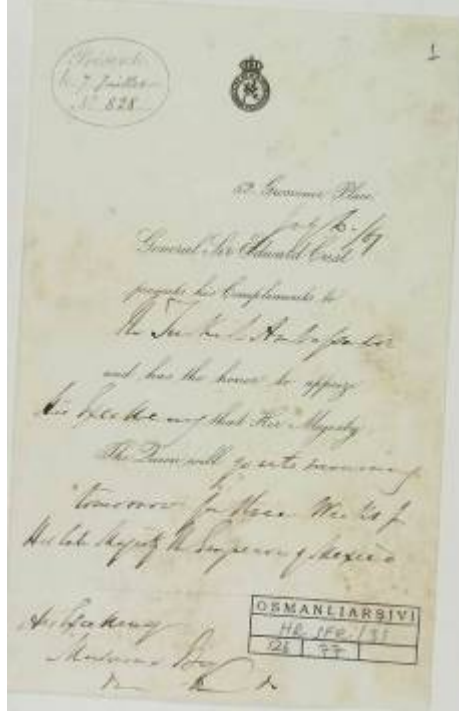 1
Présenté
le 7 Juillet
No 828
General Sir Edward Cust
presents his Compliments to
The Turkish Ambassador
and has the honor to apprize
His Excellency that Her Majesty
The Queen will go into mourning
tomorrow for three Weeks for
His late Majesty the Emperor of Mexico
His Excellency
OSMANLI ARŞİVİ
HR. SFR. / 31
77